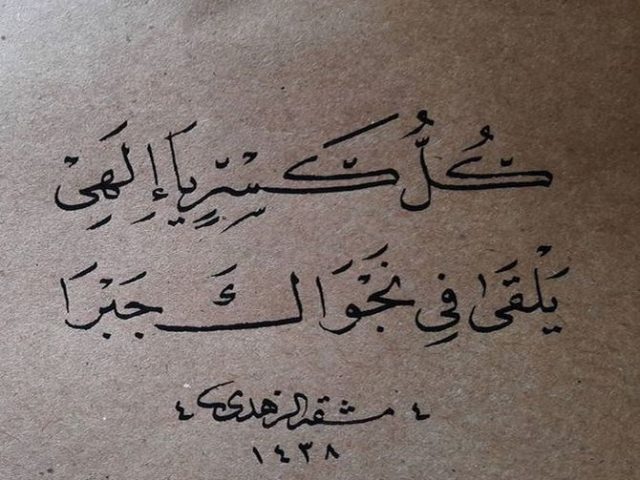 كُلُّ كَسْرٍ يَا إِلٰهِيْ
يَلْقَىٰ فِي نَجْوَاكَ جَبْرَا
مشقه الزهدي
١٤٣٨